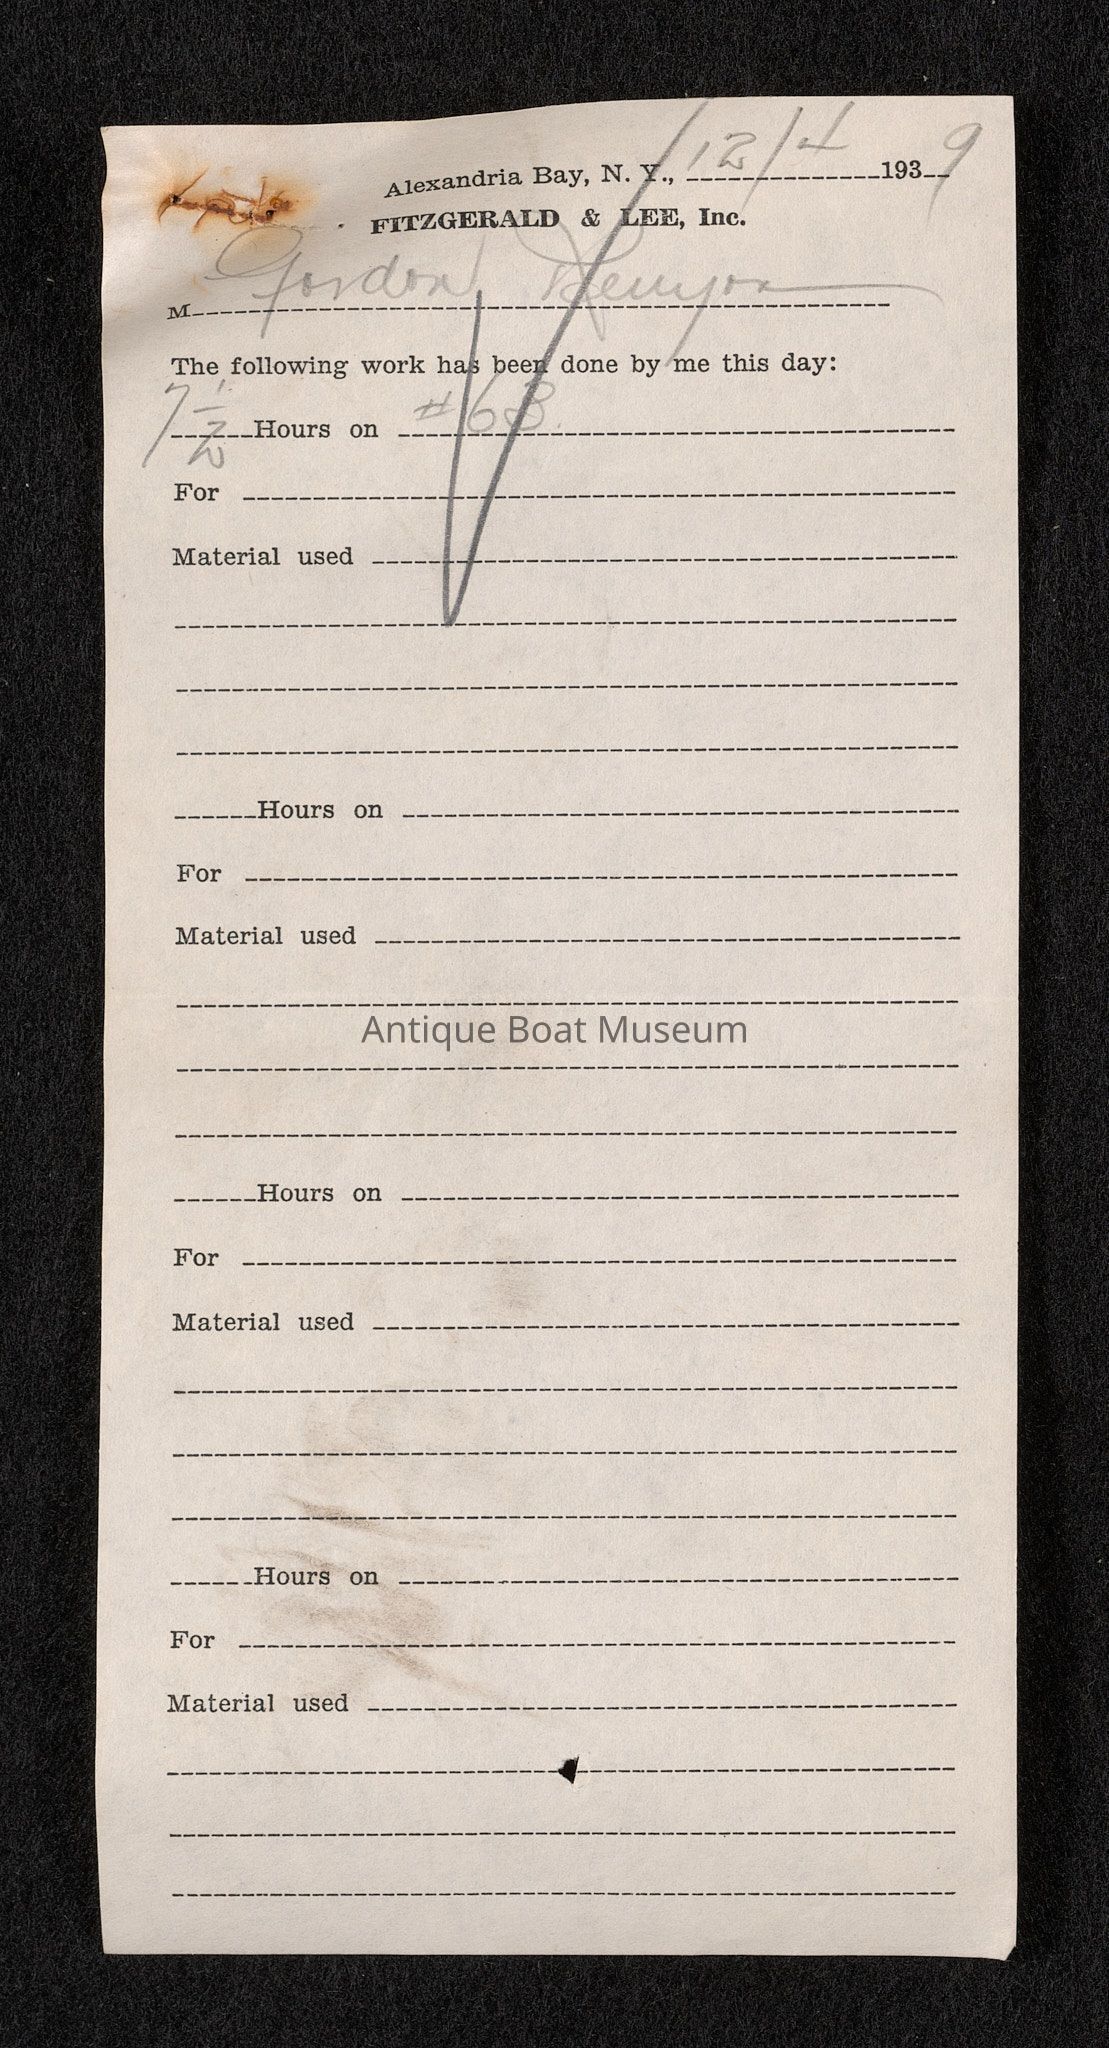 Alexandria Bay, N. Y., 12/4 1939
FITZGERALD & LEE, Inc.
M Gordon Kenyon
The following work has been done by me this day:
7 1/2 Hours on #63
For
Material used
Hours on
For
Material used
Antique Boat Museum
Hours on
For
Material used
Hours on
For
Material used